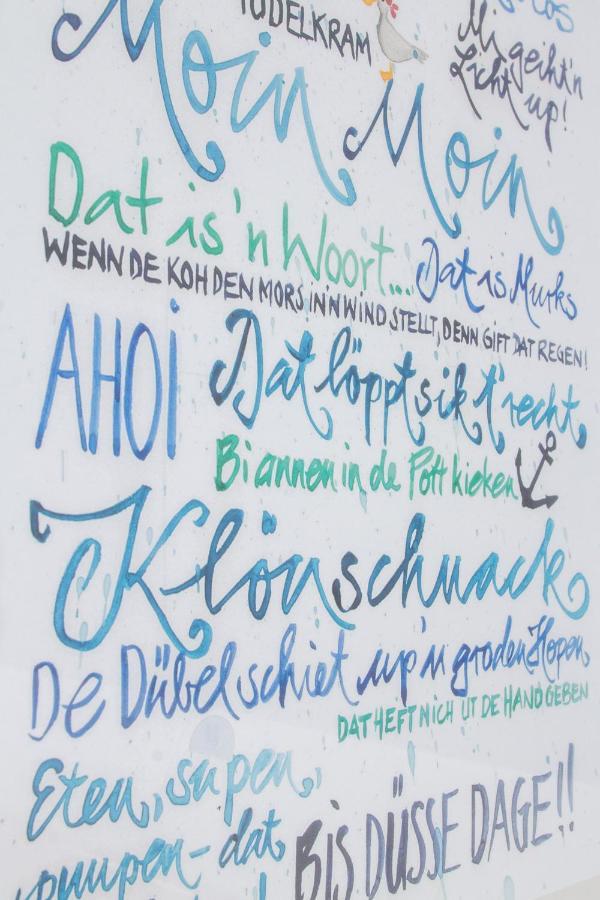 TÜDELKRAM
Mi geiht'n
Licht up!
Moin Moin
Dat is'n Woort... Dat is Murks
WENN DE KOH DEN MORS IN'N WIND STELLT, DENN GIFT DAT REGEN!
AHOI Dat löppt sik t'recht
Bi annen in de Pott kieken
Klönschnack
De Dübel schiet up'n groden Hopen
DAT HEFT MICH UT DE HAND GEBEN
Eten, supen,
pumpen - dat
BIS DÜSSE DAGE!!